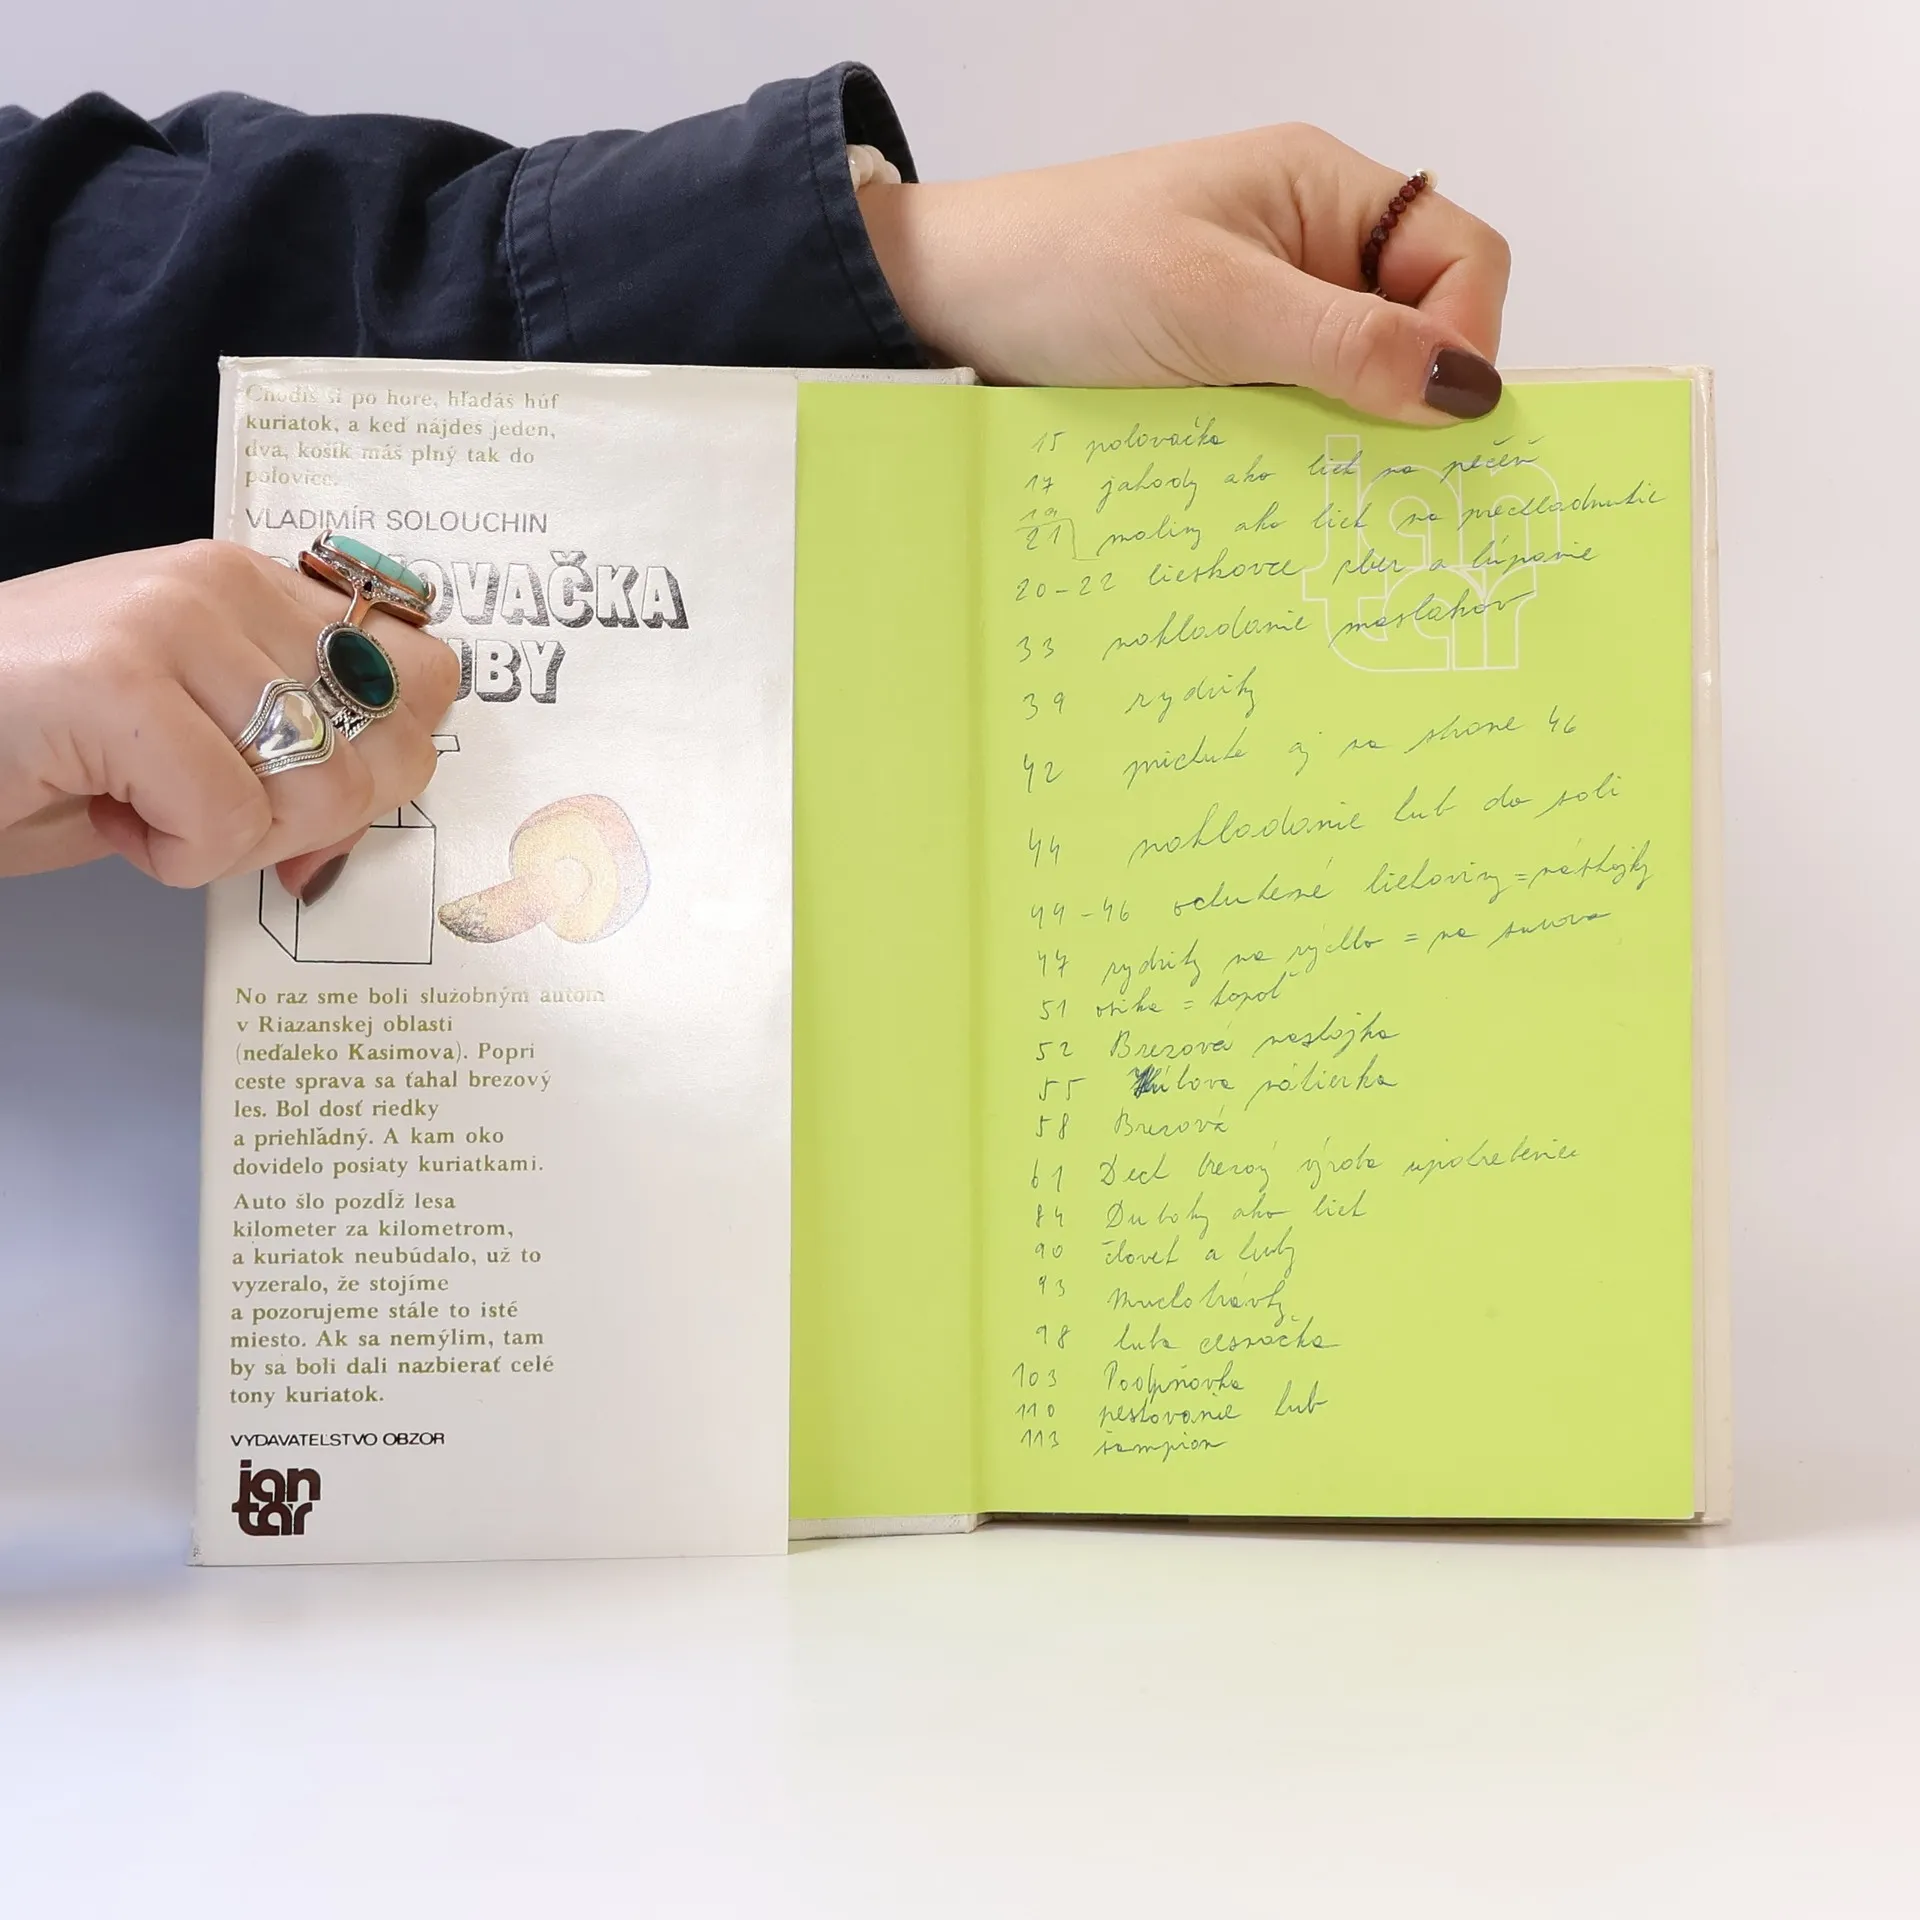 Chodíš si po hore, hľadáš húf
kuriatok, a keď nájdeš jeden,
dva, košík máš plný tak do
polovice.
VLADIMÍR SOLOUCHIN
OVAČKA
UBY
No raz sme boli služobným autom
v Riazanskej oblasti
(neďaleko Kasimova). Popri
ceste sprava sa ťahal brezový
les. Bol dosť riedky
a priehľadný. A kam oko
dovidelo posiaty kuriatkami.
Auto šlo pozdĺž lesa
kilometer za kilometrom,
a kuriatok neubúdalo, už to
vyzeralo, že stojíme
a pozorujeme stále to isté
miesto. Ak sa nemýlim, tam
by sa boli dali nazbierať celé
tony kuriatok.
VYDAVATEĽSTVO OBZOR
jan
tar
jan
tar
15 polovačka
17 jahody ako liek na pečeň
19
21 maliny ako liek na prechladnutie
20-22 lieskovce zber a lúpanie
33 nakladanie masliakov
39 rydziky
42 príchute aj na strane 46
44 nakladanie húb do soli
44-46 ochutené liehoviny = nástojky
47 rydziky na rýchlo = na surovo
51 osika = topoľ
52 Brezová nastojka
55 pátierka
58 Brezová
61 Decht brezový výroba upotrebenie
84 Dubáky ako liek
90 človek a huby
93 Muchotrávky
98 huba cesnačka
103 Podpňovka
110 pestovanie húb
113 šampion